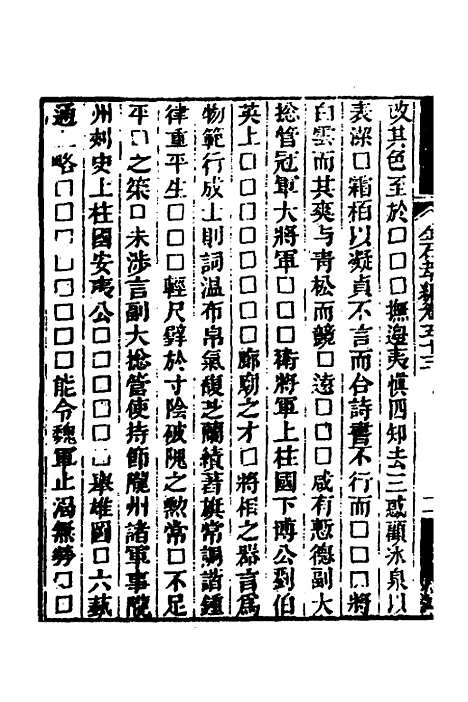 金石萃編卷五十三
二
改其色至於□□□撫邊夷愼四知去三惑顧泳泉以
表潔□霜栢以凝貞不言而合詩書不行而□□□將
白雲而其爽与靑松而競□遠□□□咸有慙德副大
捴管冠軍大將軍□□□衛將軍上柱國下博公劉伯
英上□□□□□□□廊廟之才□將相之器言爲
物範行成士則詞温布帛氣馥芝蘭績著旗常調諧鍾
律重平生□□□輕尺璧於寸陰破隗之勲常□不足
平□之筞□未涉言副大捴管使持節隴州諸軍事隴
州刺史上柱國安夷公□□□□□□□舉雄圖□六藝
通 略□□□□□□□□能令魏軍止渴無勞□□